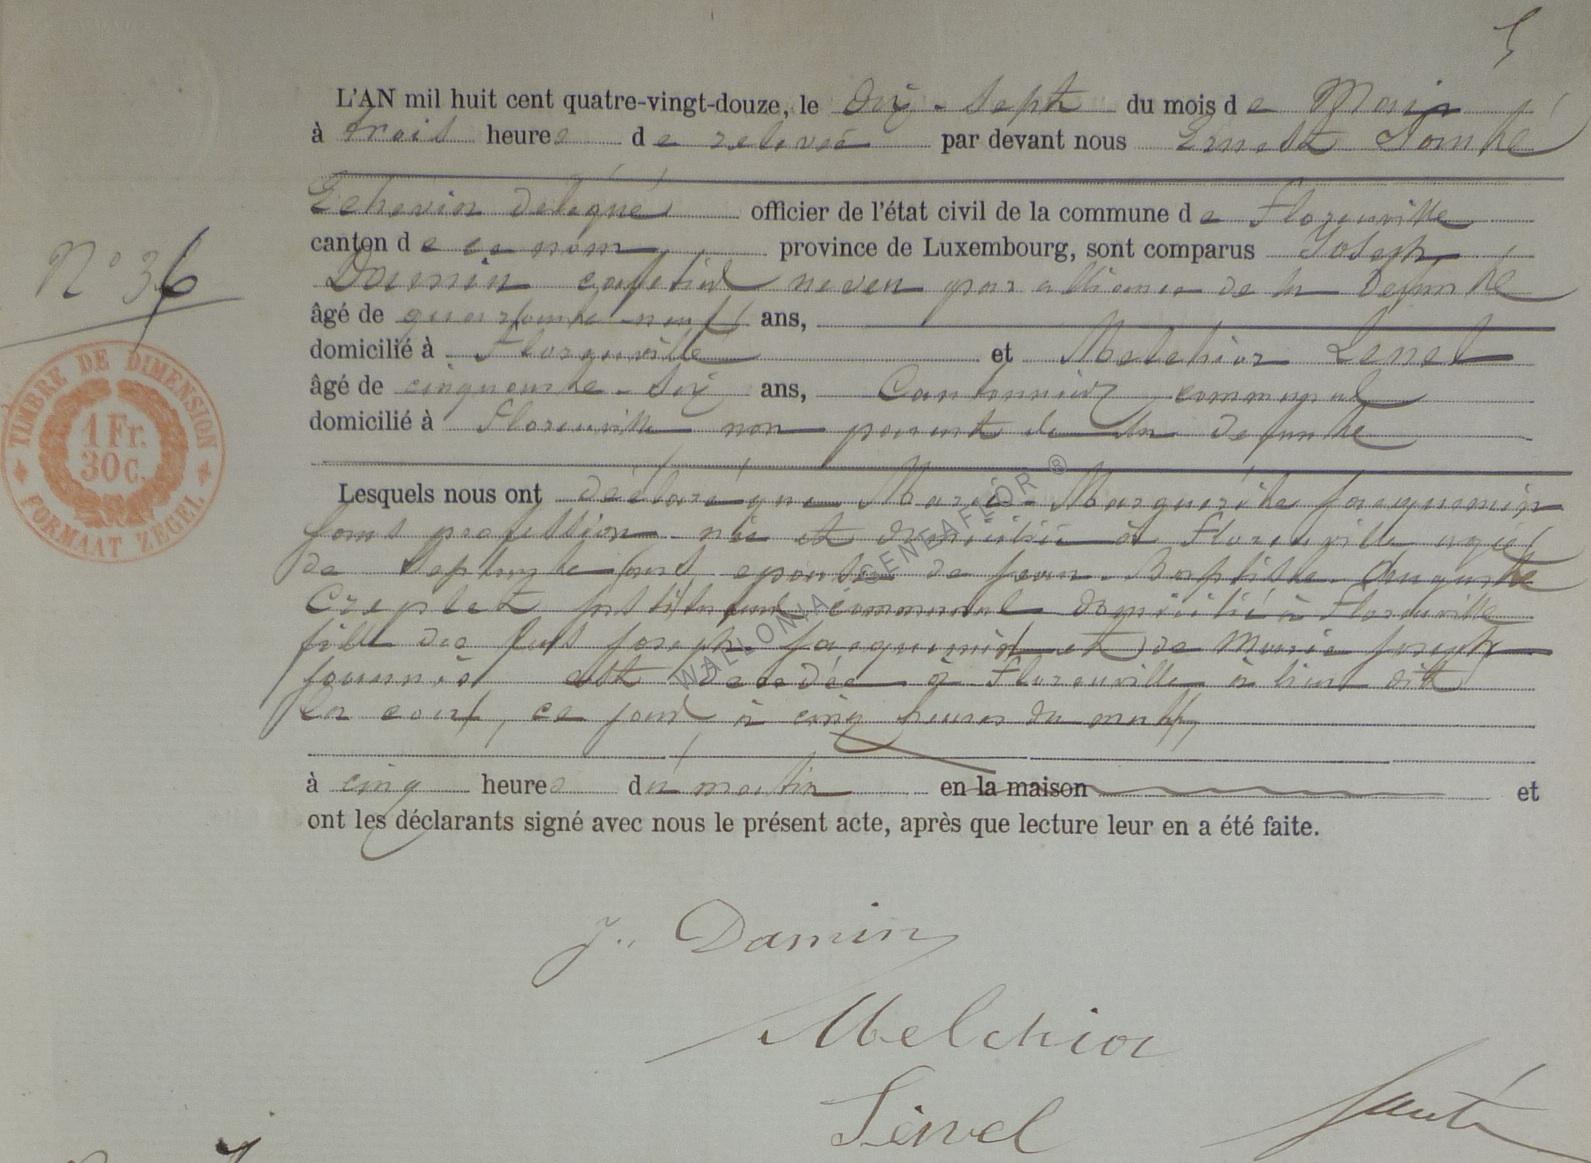 5
L'AN mil huit cent quatre-vingt-douze, le dix-sept du mois de Mai
à trois heures de relevée par devant nous Ernest
Echevin délégué officier de l'état civil de la commune de Florenville
canton de ce nom province de Luxembourg, sont comparus Joseph
N° 36
Damin neveu par alliance de la défunte
âgé de quarante-neuf ans,
domicilié à Florenville et Melchior Lenel
âgé de cinquante-six ans, Cantonnier communal
domicilié à Florenville non parent de la défunte
TIMBRE DE DIMENSION
1 Fr.
30c.
FORMAAT ZEGEL
Lesquels nous ont déclaré que Marie-Marguerite Jacquemin
sans profession née et domiciliée à Florenville agée
de Septante ans épouse de Jean-Baptiste-Auguste
instituteur communal domicilié à Florenville
fille des feus Joseph Jacquemin et de Marie Joseph
est décédée à Florenville à lieu dit
La cour, ce jour à cinq heures du matin
à cinq heures du matin en la maison et
ont les déclarants signé avec nous le présent acte, après que lecture leur en a été faite.
WALLONIA GENEAFLOR ®
J. Damin
Melchior